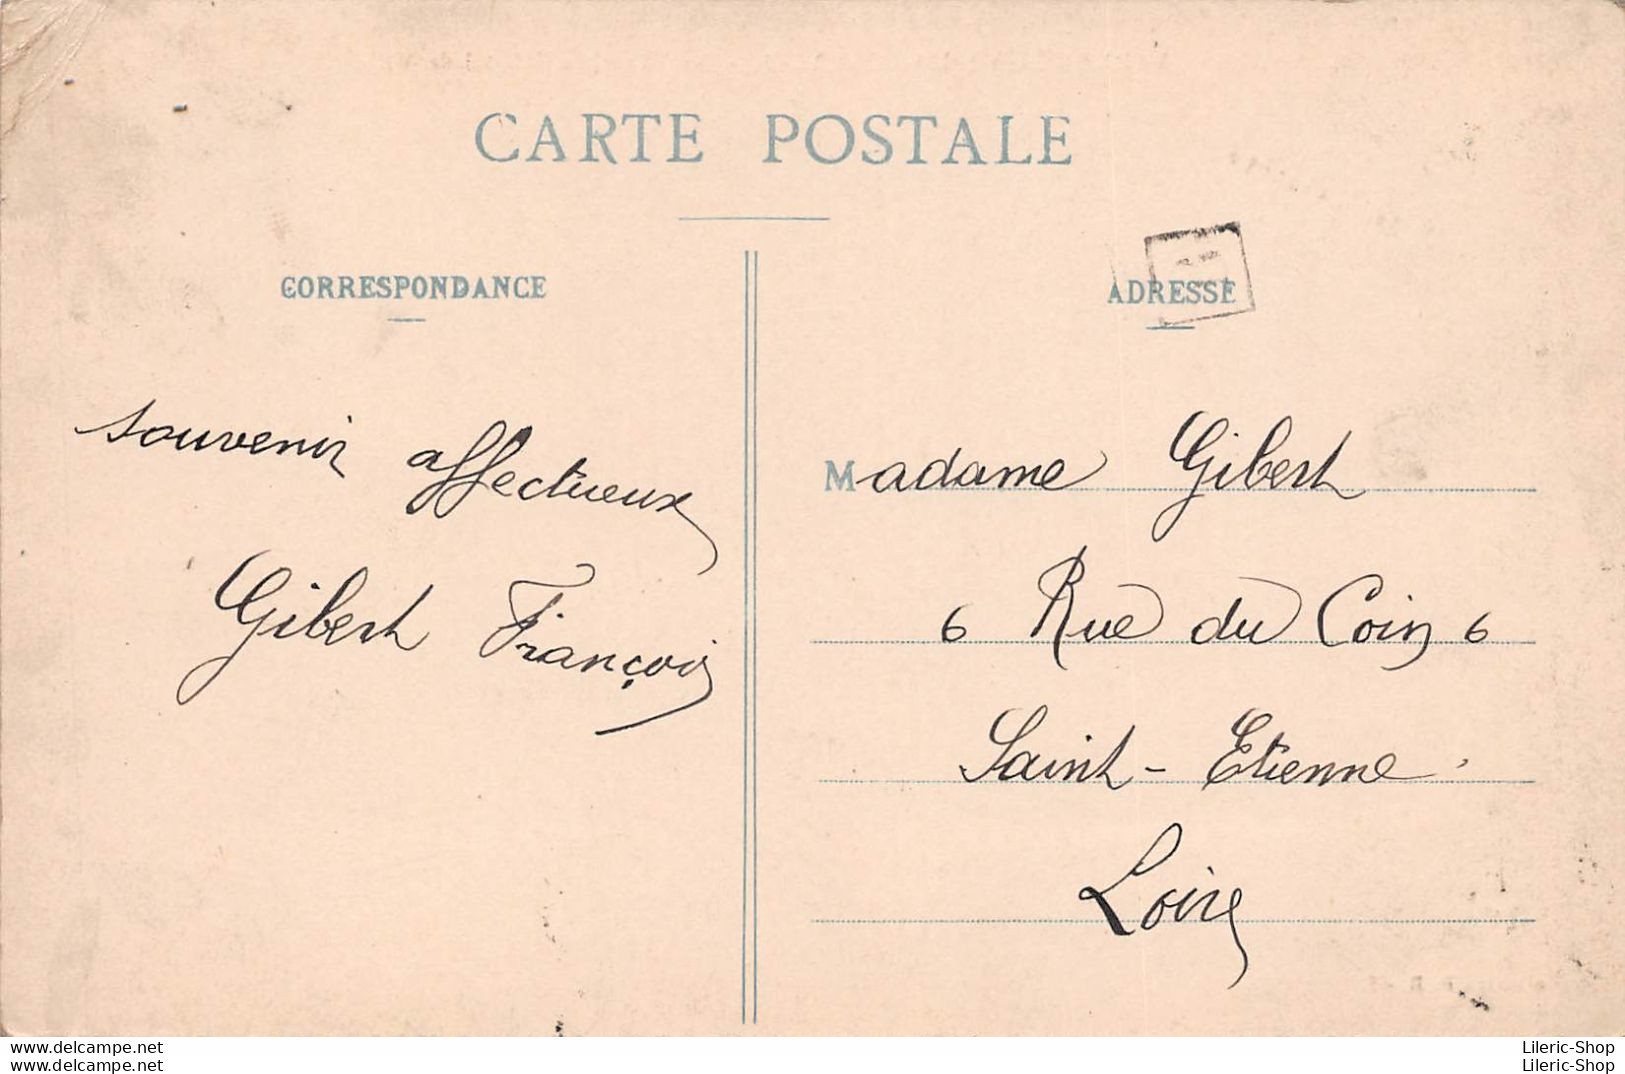 CARTE POSTALE
CORRESPONDANCE
souvenir affectueux
Gibert François
ADRESSE
Madame Gibert
6 Rue du Coin 6
Saint-Etienne.
Loire
www.delcampe.net
www.delcampe.net
Lileric-Shop
Lileric-Shop